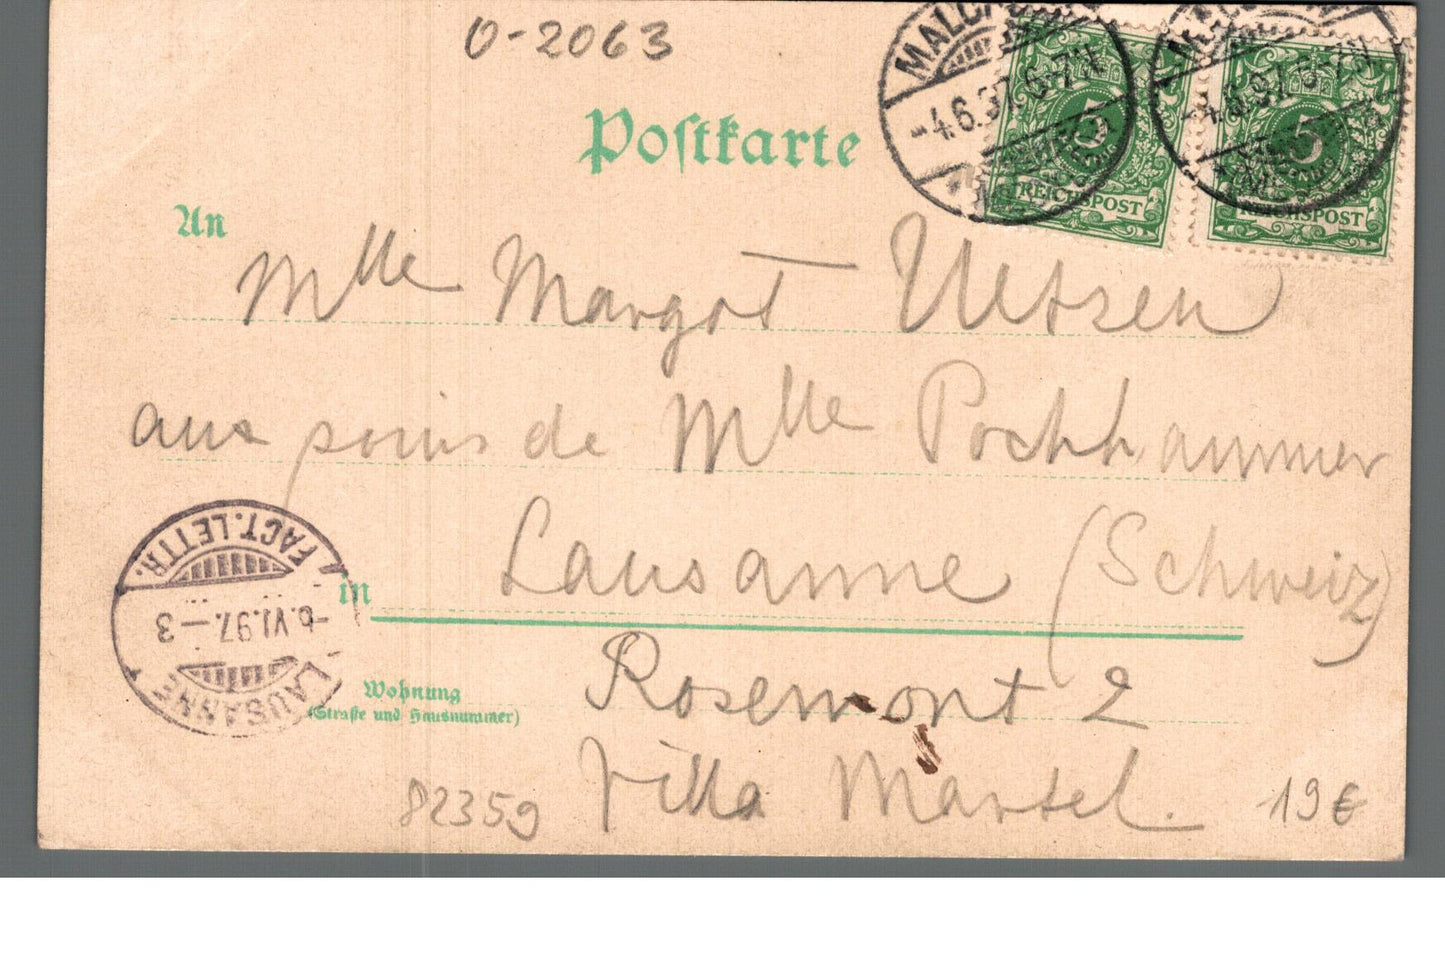 0-2063
Postkarte
4.6.97. 6-7N
4.6.97. 6-7N
5
5
REICHSPOST
REICHSPOST
An
Mlle Margot
aux soins de Mlle Pochhammer
in Lausanne (Schweiz)
FACT. LETTR.
6.VI.97.-3
LAUSANNE
Wohnung
(Straße und Hausnummer)
Rosemont 2
Villa Martel.
82359
19€